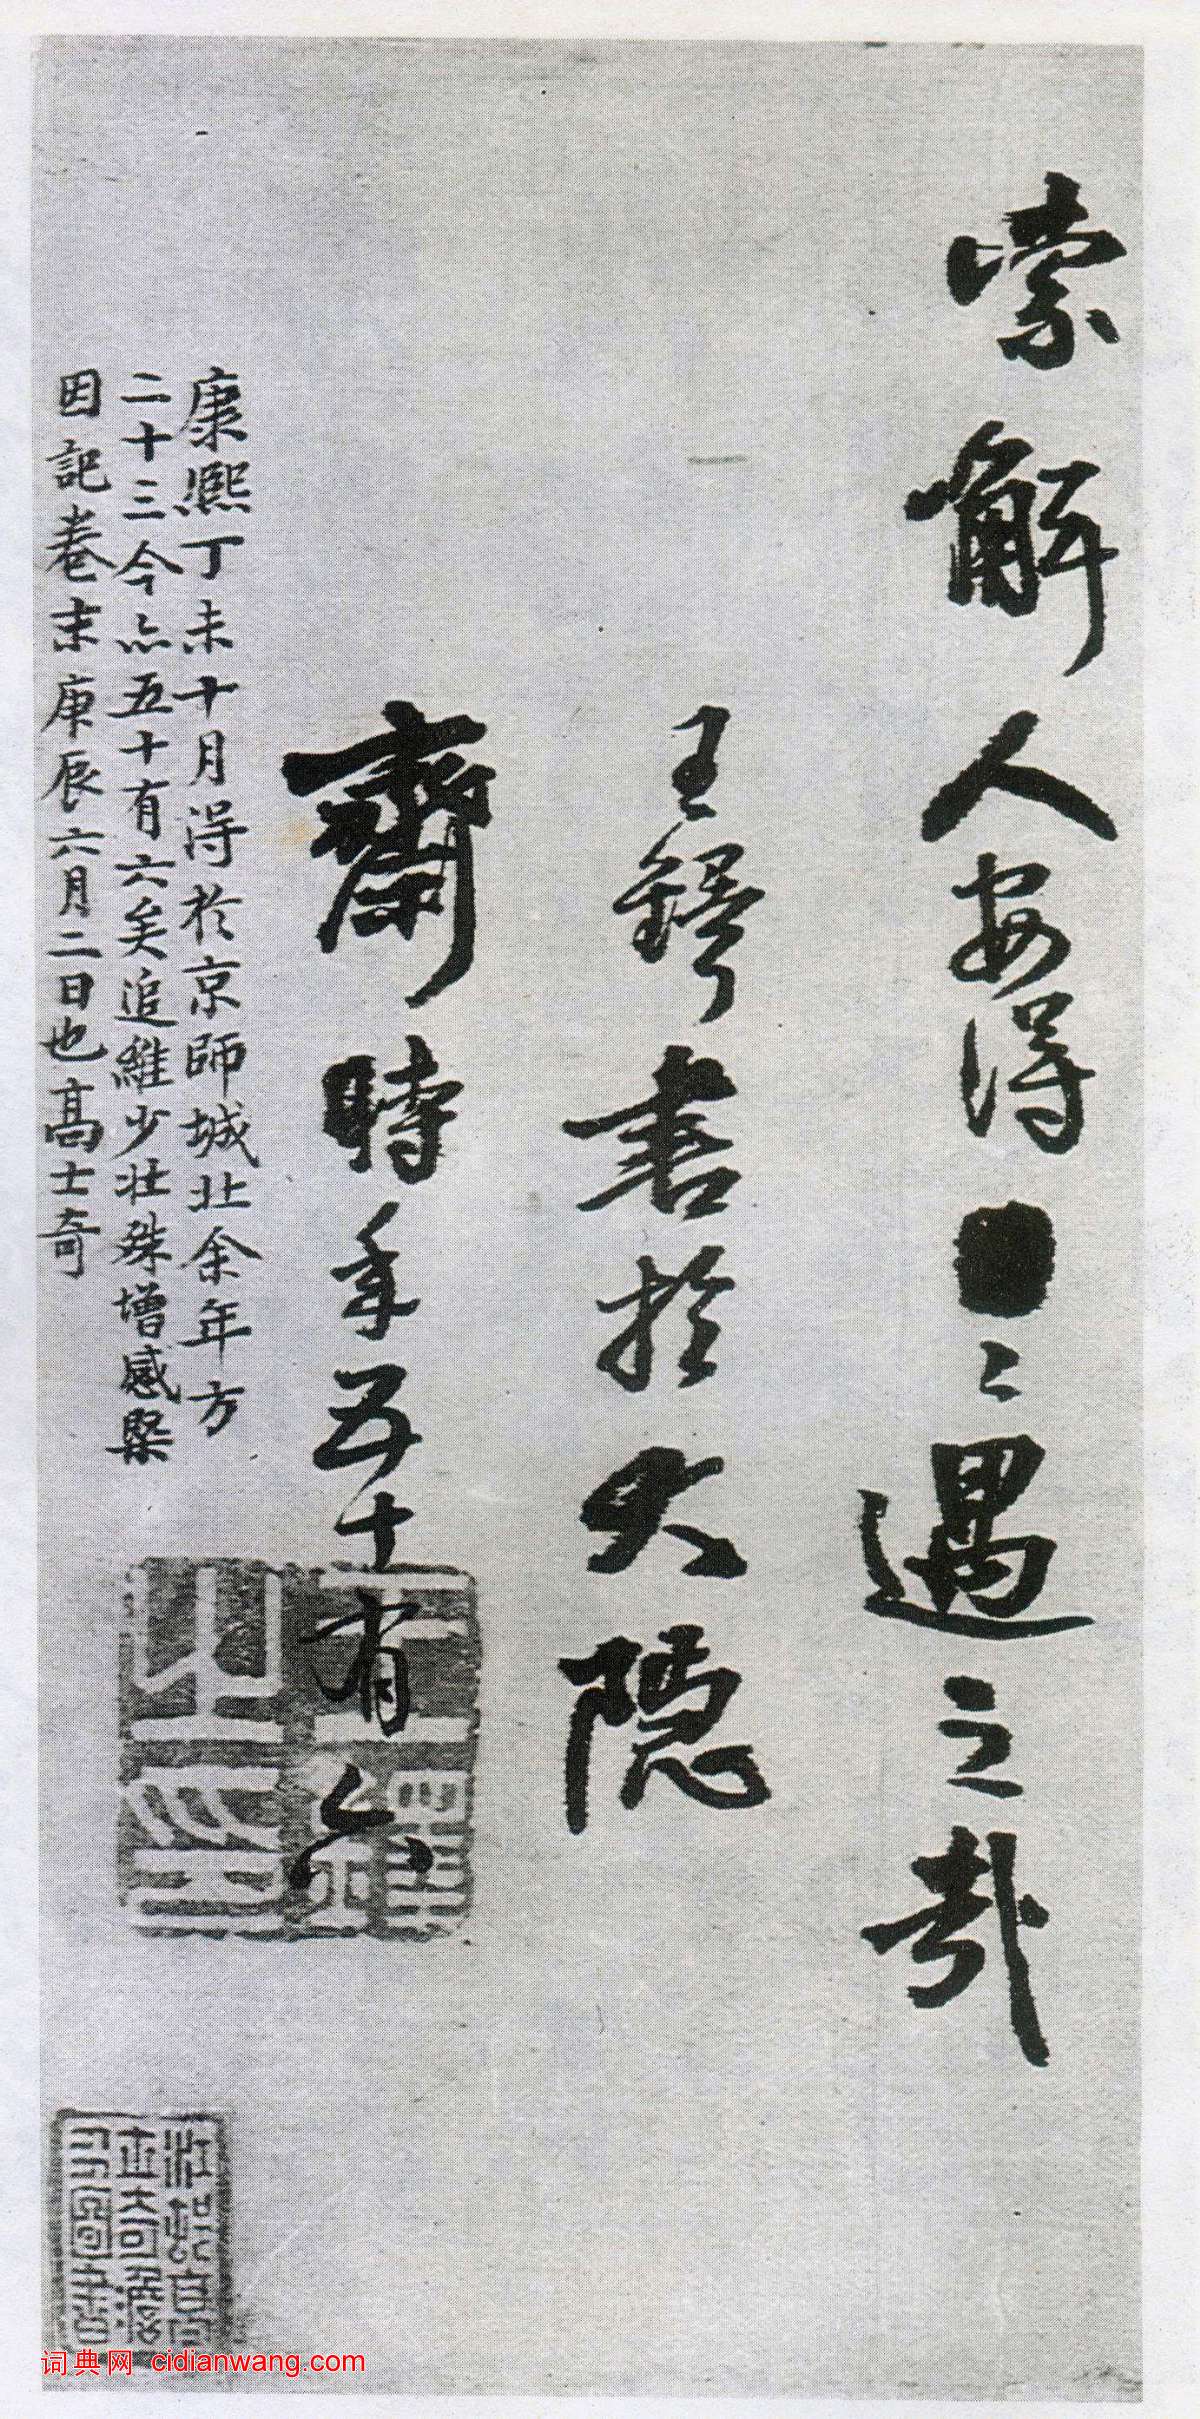 索解人安得■〻遇之哉
王鐸書於大隱
齋時年五十有六
康熙丁未十月得於京師城北余年方
二十三今亦五十有六矣追維少壯殊增感槩
因記卷末庚辰六月二日也高士奇
王鐸之印
詞典网 cidianwang.com